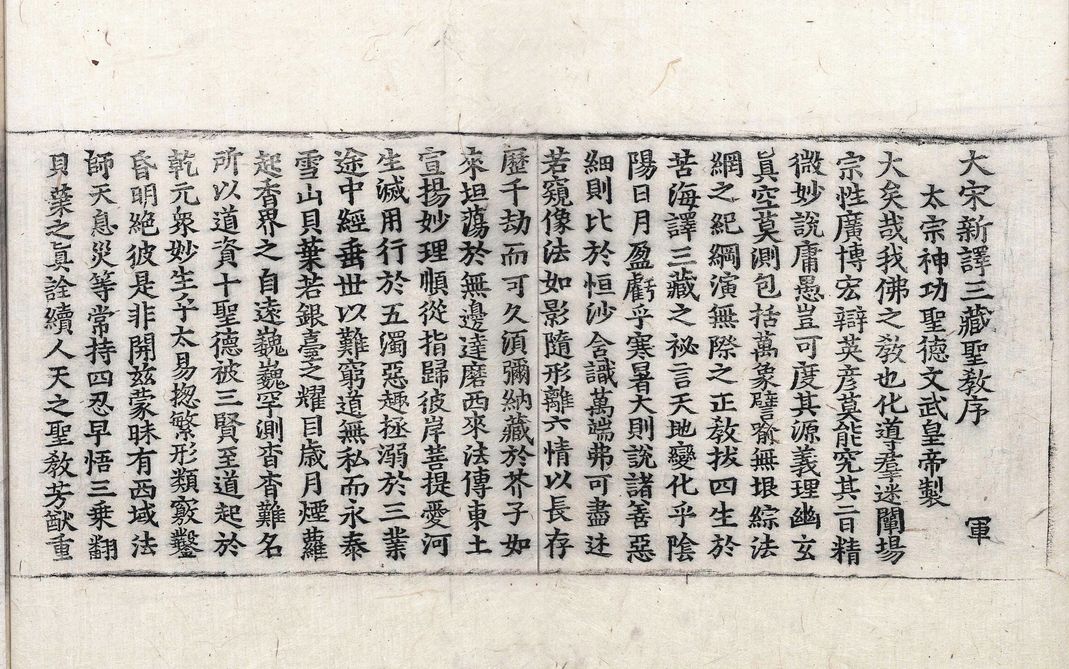 大宋新譯三藏聖敎序 軍
太宗神功聖德文武皇帝製
大矣哉我佛之敎也化導羣迷闡揚
宗性廣博宏辯英彦莫能究其旨精
微妙說庸愚豈可度其源義理幽玄
眞空莫測包括萬象譬喻無垠綜法
網之紀綱演無際之正敎拔四生於
苦海譯三藏之祕言天地變化乎陰
陽日月盈虧乎寒暑大則說諸善惡
細則比於恒沙含識萬端弗可盡述
若窺像法如影隨形離六情以長存
歷千劫而可久須彌納藏於芥子如
來坦蕩於無邊達磨西來法傳東土
宣揚妙理順從指歸彼岸菩提愛河
生滅用行於五濁惡趣拯溺於三業
途中經垂世以難窮道無私而永泰
雪山貝葉若銀臺之耀目歲月煙蘿
起香界之自遠巍巍罕測杳杳難名
所以道資十聖德被三賢至道起於
乾元衆妙生乎太易揔繁形類竅鑿
昏明絕彼是非開玆蒙昧有西域法
師天息災等常持四忍早悟三乘翻
貝葉之眞詮續人天之聖敎芳猷重